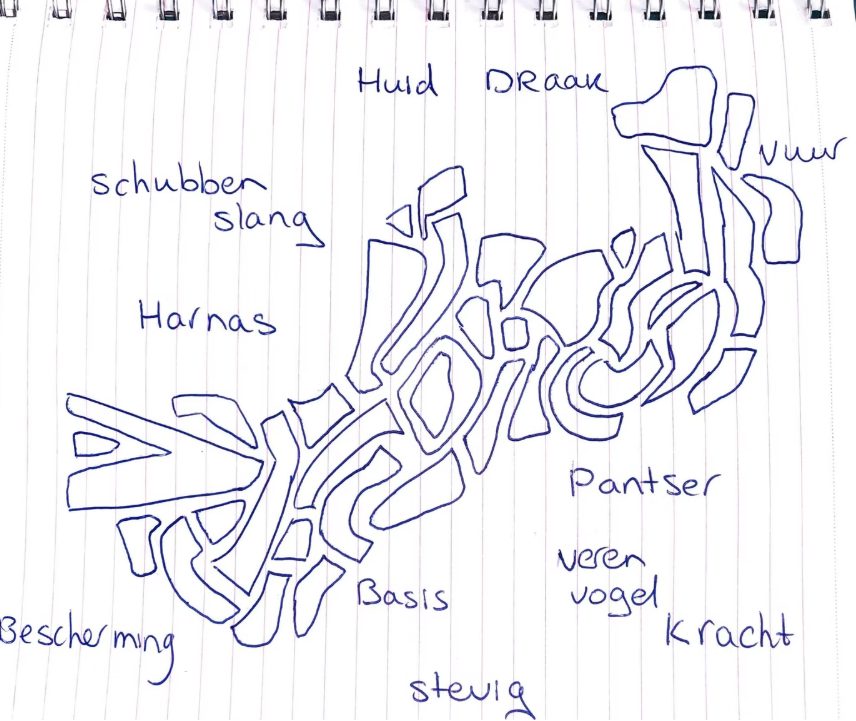 Huid DRaak
vuur
schubben
slang
Harnas
Pantser
veren
vogel
Basis
Kracht
Bescherming
stevig